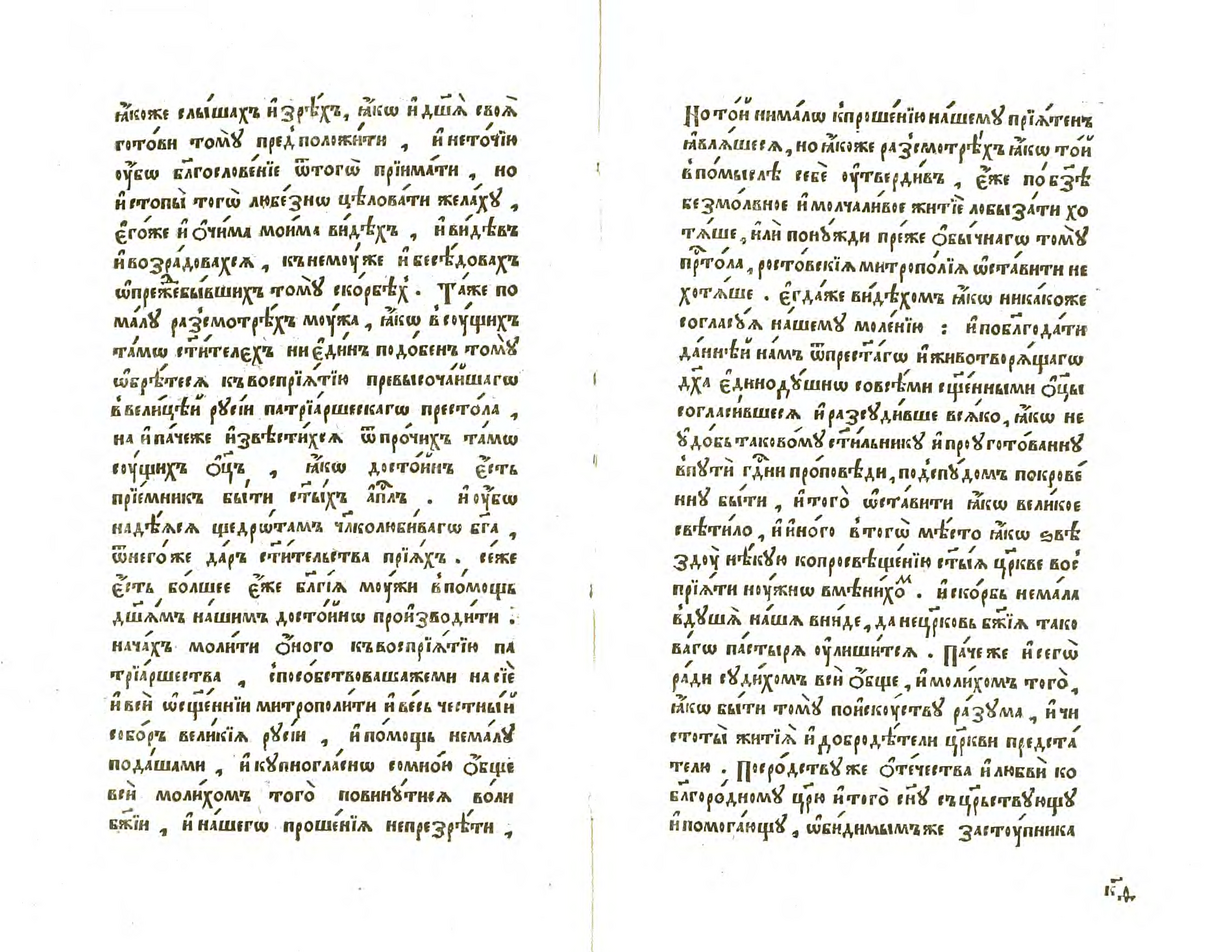 ꙗ҆́коже слы́шахъ и҆зрѣ́хъ, ꙗ҆́кѡ и҆дш҃ѧ̀ своѧ̀
готови томꙋ̀ предположи́ти , и҆неточі́ю
ᲂу҆́бѡ бл҃гослове́нїе ѿтогѡ̀ прїима́ти , но
и҆стопы̀ тогѡ̀ любе́знѡ цѣлова́ти жела́хꙋ ,
є҆го́же и҆ ѻ҆чи́ма мои́ма ви́дѣхъ , и҆ви́дѣвъ
и҆возра́довахсѧ , къ немоу́же и҆бесѣ́довахъ
ѡ҆преже́бывшихъ томꙋ̀ ско́рбѣх . Та́же по
ма́лꙋ разсмотрѣ́хъ моу́жа , ꙗ҆́кѡ всоу́щихъ
та́мѡ ст҃и́телєхъ ни є҆ди́нъ подо́бенъ томꙋ̀
ѡ҆брѣ́тесѧ къ воспрїѧ́тїю превысоча́йшагѡ
ввели́цѣй рꙋсі́и патрїа́ршескагѡ престо́ла ,
на и҆па́чеже и҆звѣ́стихсѧ ѿпро́чихъ та́мѡ
соу́щихъ ѻ҆ц҃ъ , ꙗ҆́кѡ досто́инъ є҆́сть
прїе́мникъ бы́ти ст҃ы́хъ а҆пⷭ҇лъ . и҆ ᲂу҆́бѡ
надѣ́ѧсѧ щедрѡ́тамъ чл҃колюби́вагѡ бг҃а ,
ѿнего́же да́ръ ст҃и́тельства прїѧ́хъ . се́же
є҆́сть бо́лшее є҆́же бл҃гі́ѧ моу́жи впо́мощь
дш҃а́мъ на́шимъ досто́йнѡ производи́ти .
нача́хъ моли́ти ѻ҆́ного къ воспрїѧ́тїю па
трїа́ршества , спосо́бствовашажеми на сїѐ
и҆вси̑ ѡ҆сщ҃е́ннїи митрополи́ти и҆ве́сь честны́й
собо́ръ вели́кїѧ рꙋсі́и , и҆по́мощь нема́лꙋ
пода́шами , и҆кꙋпногла́снѡ сомно́ю ѻ҆́бще
всѝ моли́хомъ того̀ повинꙋ́тисѧ во́ли
бж҃їи , и҆на́шегѡ проше́нїѧ непрезрѣ́ти ,
Но то́й нима́лѡ кпроше́нїю на́шемꙋ прїѧ́тенъ
ꙗ҆влѧ́шесѧ , но ꙗ҆́коже разсмотрѣ́хъ ꙗ҆́кѡ то́й
впо́мыслѣ себѐ ᲂу҆тверди́въ , є҆́же по бз҃ѣ
безмо́лвное и҆молчали́вое житїѐ лобыза́ти хо
тѧ́ше , и҆лѝ понꙋ́жди пре́же ѻ҆бы́чнагѡ томꙋ̀
прⷭ҇то́ла , росто́вскїѧ митропо́лїѧ ѡ҆ста́вити не
хотѧ́ше . є҆гда́же ви́дѣхомъ ꙗ҆́кѡ ника́коже
согласꙋ́ѧ на́шемꙋ моле́нїю : и҆побл҃года́ти
да́ннѣй на́мъ ѿпрест҃а́гѡ и҆животворѧ́щагѡ
дх҃а є҆динодꙋ́шнѡ совсѣ́ми сщ҃е́нными ѻ҆ц҃ы̀
согласи́вшесѧ и҆разсꙋди́вше всѧ́ко , ꙗ҆́кѡ не
ᲂу҆до́бь таково́мꙋ свѣти́льникꙋ и҆проꙋгото́ваннꙋ
впꙋтѝ гдⷭ҇ни про́повѣди , подспꙋ́домъ покрове́
ннꙋ бы́ти , и҆того̀ ѡ҆ста́вити ꙗ҆́кѡ вели́кое
свѣти́ло , и҆и҆но́го втогѡ̀ мѣ́сто ꙗ҆́кѡ ѕвѣ
здоу̀ нѣ́кꙋю копросвѣще́нїю ст҃ы́ѧ цр҃кве вос
прїѧ́ти ноу́жнѡ вмѣни́хоⷨ . и҆ско́рбь нема́ла
вдꙋ́шѧ на́шѧ вни́де , да нецр҃ковь бж҃їѧ тако
ва́гѡ па́стырѧ ᲂу҆лиши́тсѧ . Па́чеже и҆сегѡ̀
ра́ди сꙋди́хомъ всѝ ѻ҆́бще , и҆моли́хомъ того̀ ,
ꙗ҆́кѡ бы́ти томꙋ̀ пои҆скоу́ствꙋ ра́зꙋма , и҆чи
стоты̀ житїѧ̀ и҆доброде́тели цр҃кви предста́
телю . Посро́дствꙋже ѻ҆те́чества и҆любвѝ ко
бл҃горо́дномꙋ цр҃ю̀ и҆того̀ сн҃ꙋ съцр҃ьствꙋ́ющꙋ
и҆помога́ющꙋ , ѡ҆би́димымъже засто́упника
к҃д